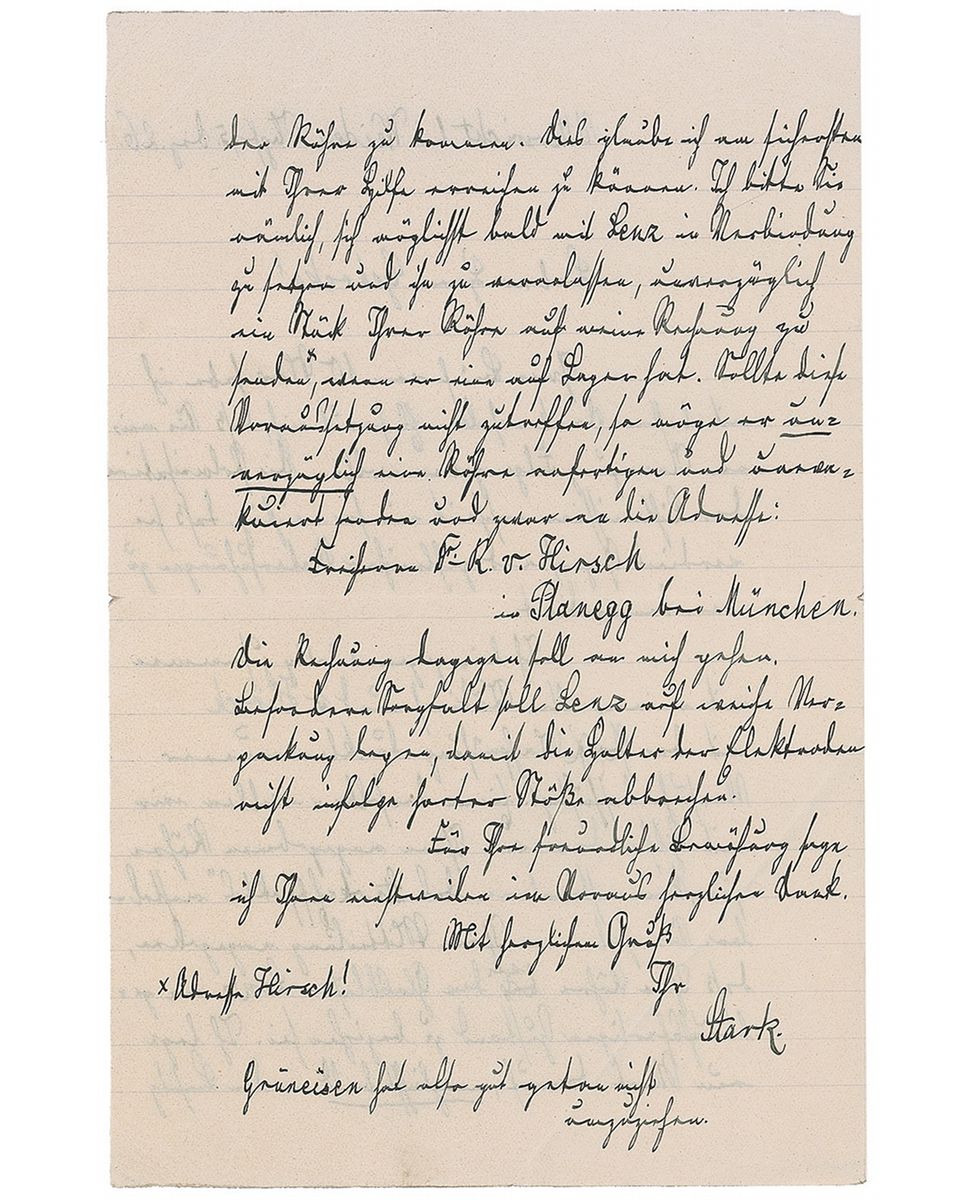 der Röhre zu kommen. Dies glaube ich am sichersten
mit Ihrer Hilfe erreichen zu können. Ich bitte Sie
nämlich, sich möglichst bald mit Lenz in Verbindung
zu setzen und ihn zu veranlassen, unverzüglich
ein Stück Ihrer Röhre auf meine Rechnung zu
sendenˣ, wenn er eine auf Lager hat. Sollte diese
Voraussetzung nicht zutreffen, so möge er un=
verzüglich eine Röhre anfertigen und uneva=
kuiert senden und zwar an die Adresse:
Freiherrn Fr. K. v. Hirsch
in Planegg bei München.
Die Rechnung dagegen soll an mich gehen.
Besondere Sorgfalt soll Lenz auf weiche Ver=
packung legen, damit die Halter der Elektroden
nicht infolge harter Stöße abbrechen.
Für Ihre freundliche Bemühung sage
ich Ihnen einstweilen im Voraus herzlichen Dank.
Mit herzlichem Gruß
Ihr
x Adresse Hirsch!
Stark.
Grüneisen hat also gut getan nicht
umzuziehen.